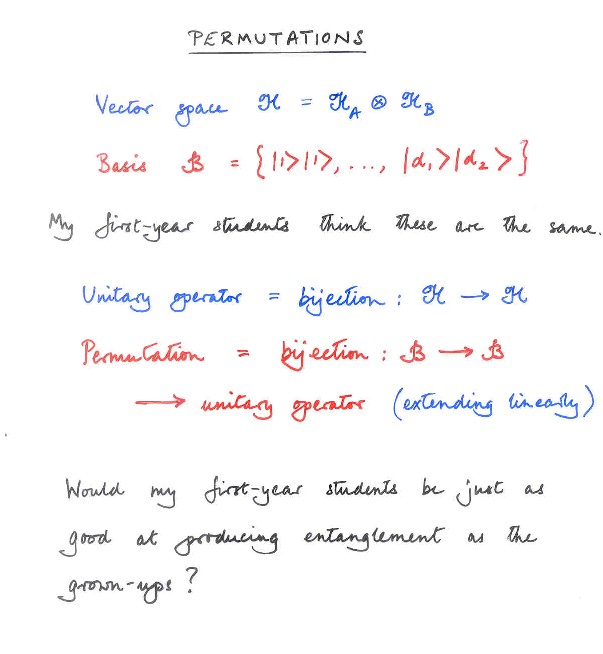 PERMUTATIONS
Vector space ℋ = ℋ_A ⊗ ℋ_B
Basis ℬ = {|1>|1>, ..., |d₁>|d₂>}
My first-year students think these are the same.
Unitary operator = bijection : ℋ → ℋ
Permutation = bijection : ℬ → ℬ
→ unitary operator (extending linearly)
Would my first-year students be just as
good at producing entanglement as the
grown-ups?